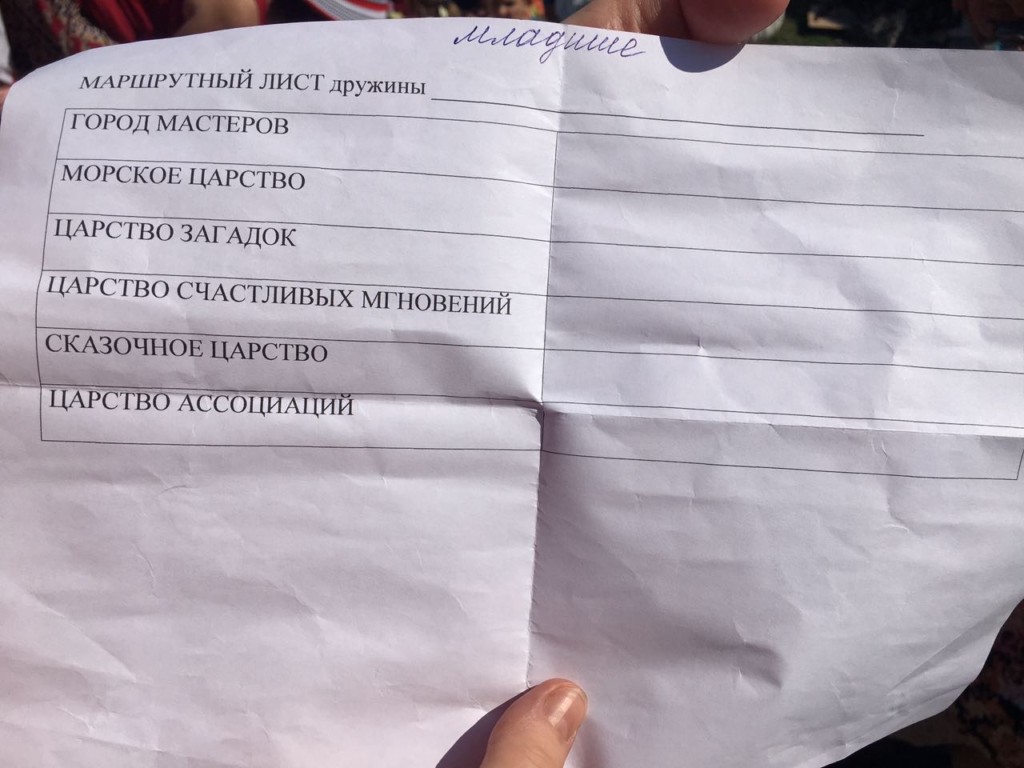 младшие
МАРШРУТНЫЙ ЛИСТ дружины
ГОРОД МАСТЕРОВ
МОРСКОЕ ЦАРСТВО
ЦАРСТВО ЗАГАДОК
ЦАРСТВО СЧАСТЛИВЫХ МГНОВЕНИЙ
СКАЗОЧНОЕ ЦАРСТВО
ЦАРСТВО АССОЦИАЦИЙ